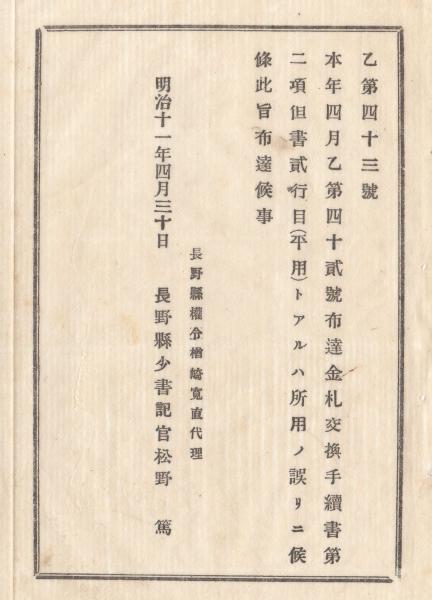 乙第四十三號
本年四月乙第四十貳號布達金札交換手續書第
二項但書貳行目(平用)トアルハ所用ノ誤リニ候
條此旨布達候事
長野縣權令楢崎寬直代理
明治十一年四月三十日　長野縣少書記官松野　篤